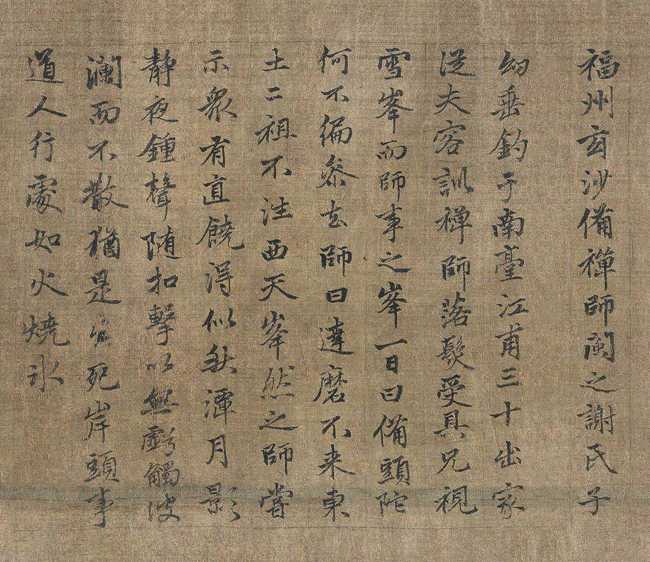 福州玄沙備禪師閩之謝氏子
幼垂釣于南臺江甫三十出家
從夫容訓禪師落髮受具兄視
雪峯而師事之峯一日曰備頭陀
何不徧叅去師曰達磨不来東
土二祖不往西天峯然之師嘗
示衆有直饒得似秋潭月影
静夜鍾聲随扣擊以無虧觸波
瀾而不散猶是生死岸頭事
道人行處如火燒氷